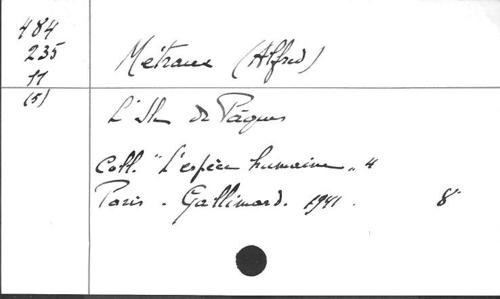 484
235
17
(5)
Métraux (Alfred)
L'Ile de Pâques
Coll. "L'espèce humaine" 4
Paris - Gallimard. 1941. 8°